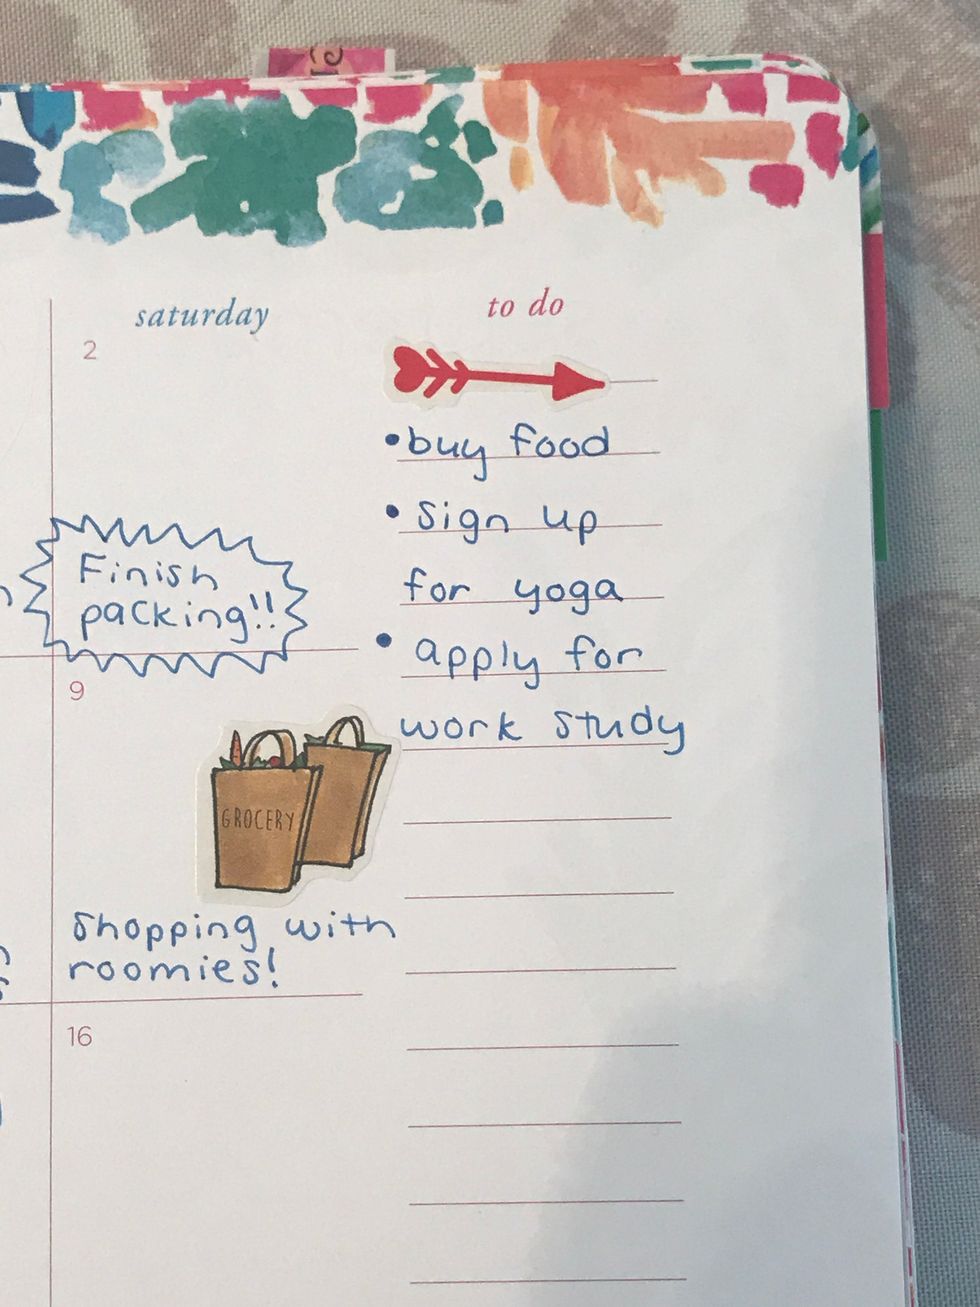 saturday
2
Finish
packing!!
9
GROCERY
Shopping with
roomies!
16
to do
•buy food
• sign up
for yoga
• apply for
work study